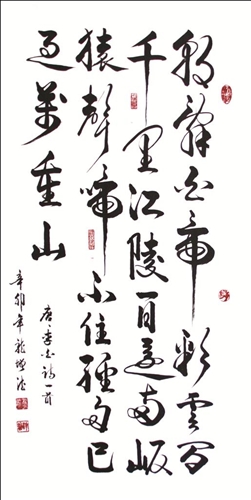 朝辭白帝彩雲間
千里江陵一日還兩岸
猿聲啼不住輕舟已
過萬重山
唐李白詩一首
辛卯年龍